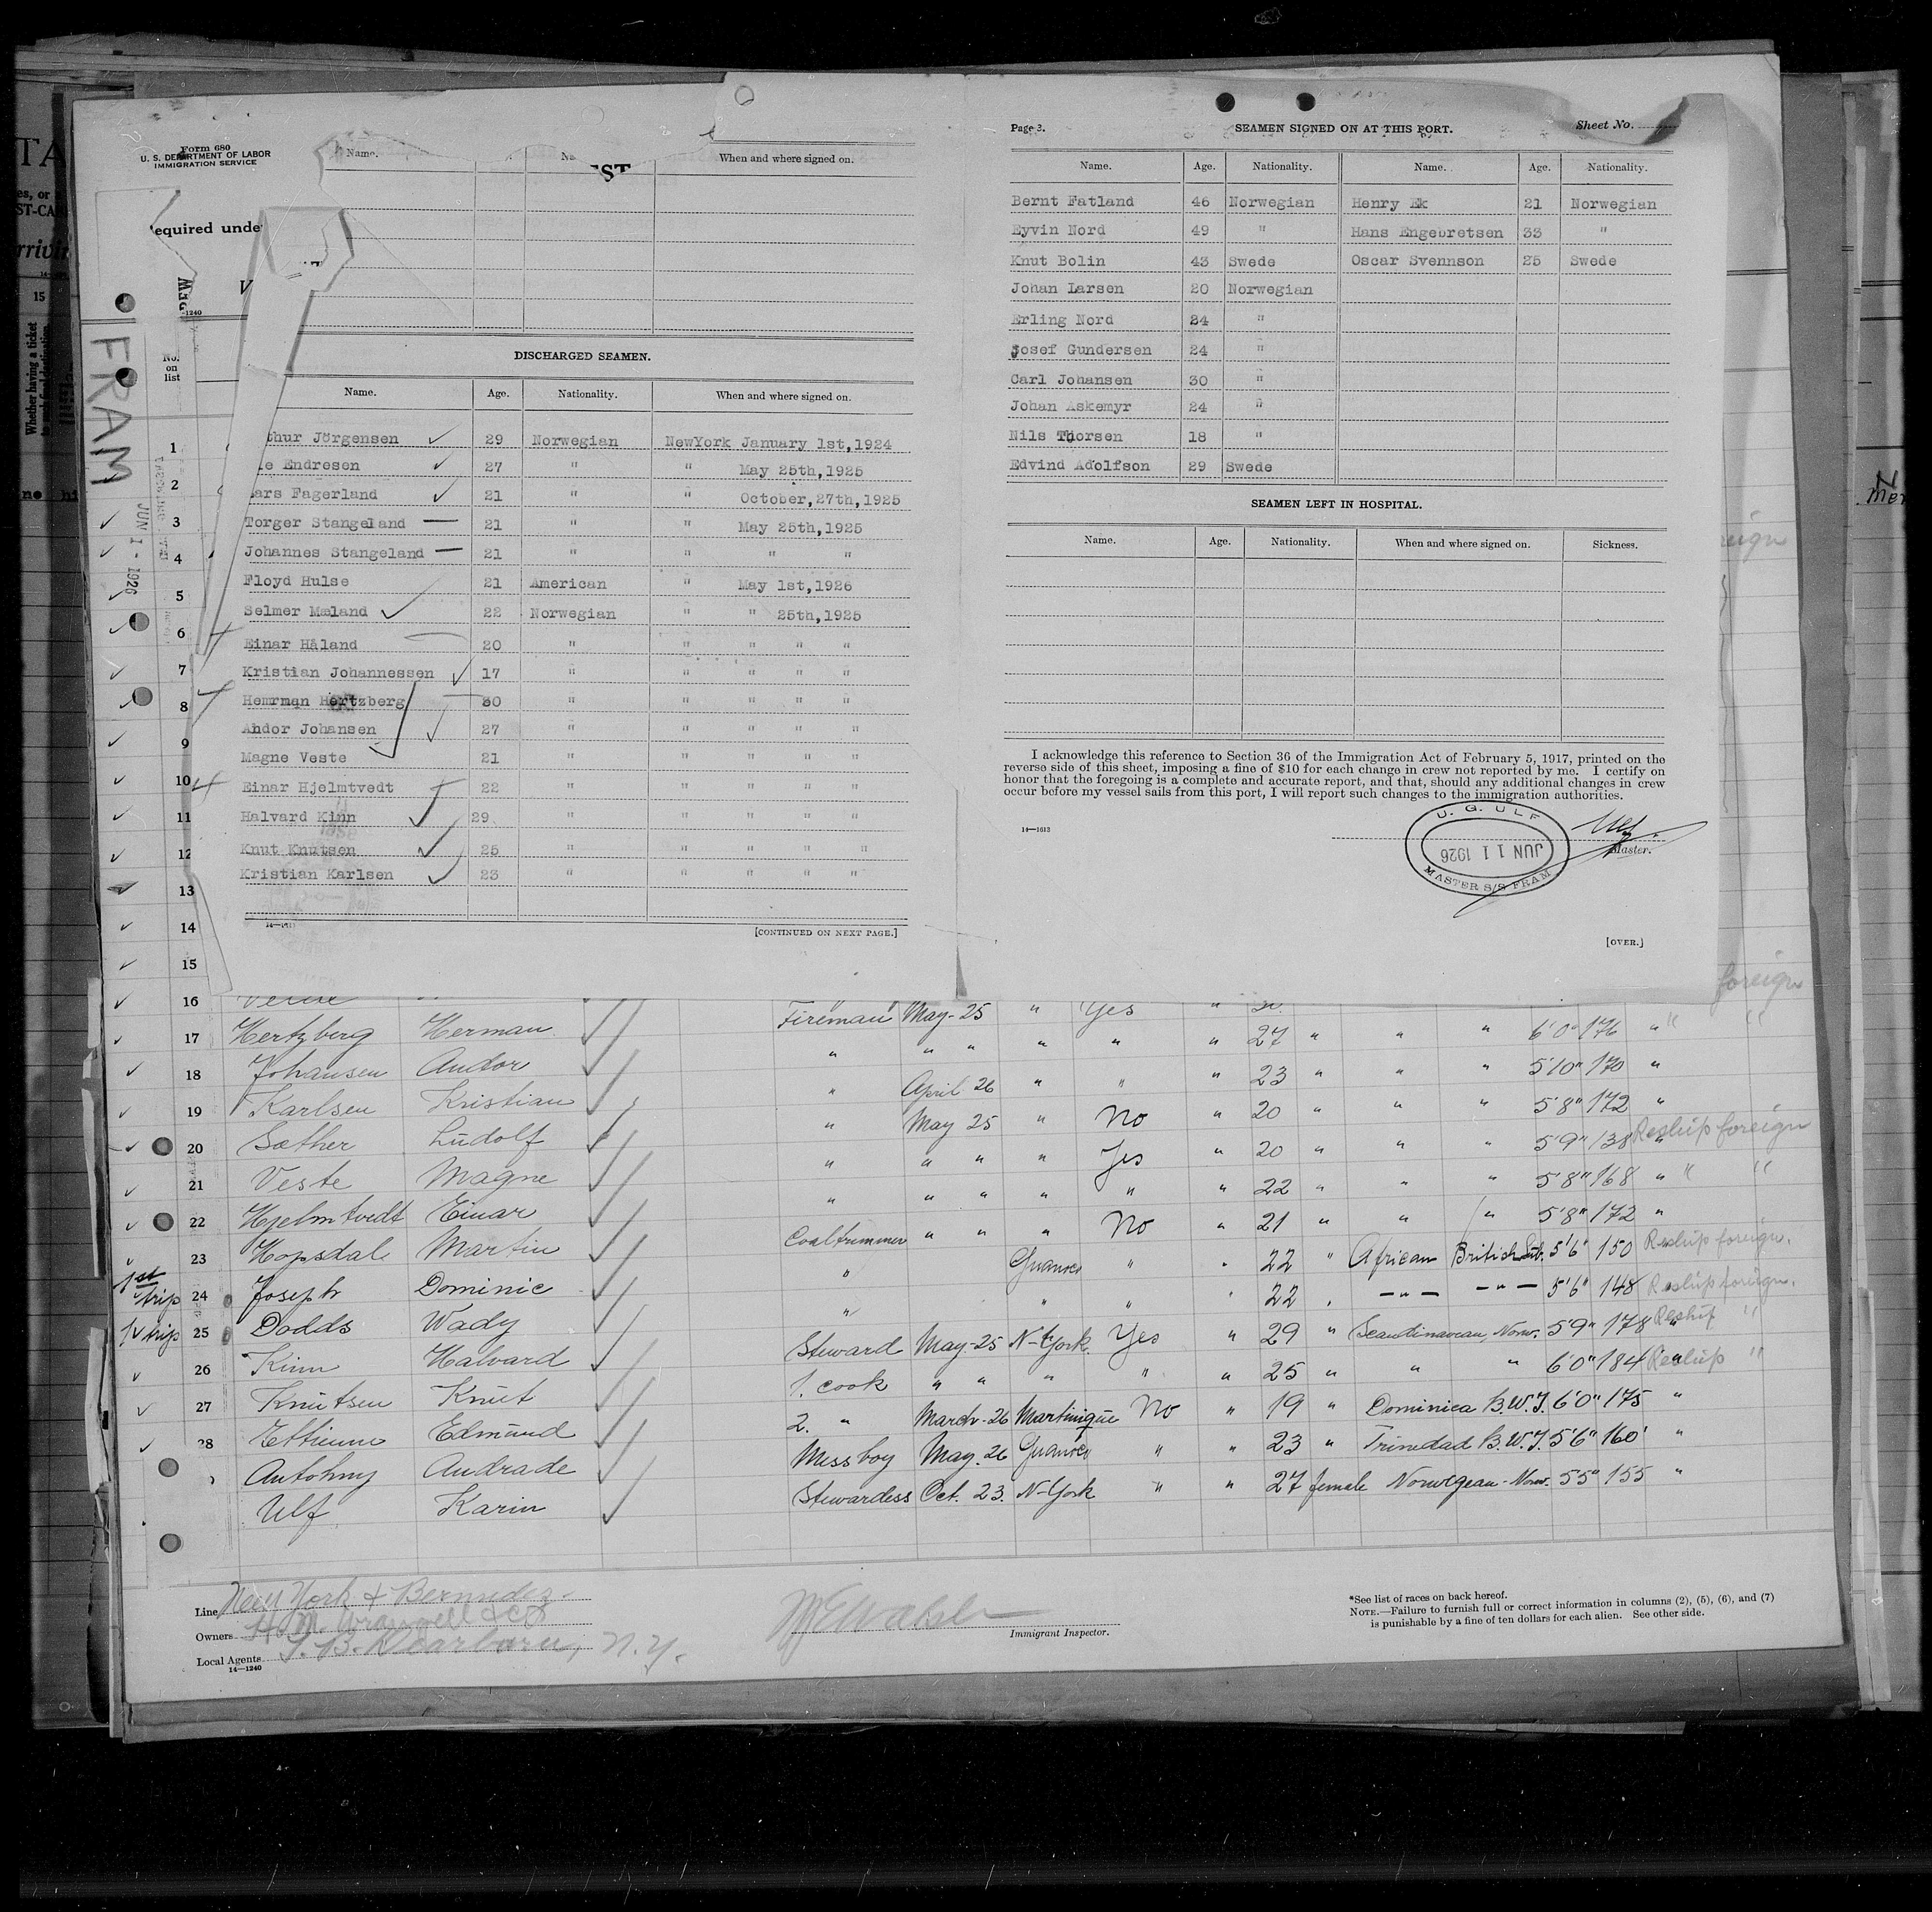 Form 680
U. S. DEPARTMENT OF LABOR
IMMIGRATION SERVICE
equired unde
FRAM
JUN 1 - 1926
No. on list
Name. When and where signed on.
DISCHARGED SEAMEN.
Name. Age. Nationality. When and where signed on.
thur Jörgensen 29 Norwegian NewYork January 1st,1924
le Endresen 27 " " May 25th,1925
ars Fagerland 21 " " October,27th,1925
Torger Stangeland 21 " " May 25th,1925
Johannes Stangeland 21 " " " "
Floyd Hulse 21 American " May 1st,1926
Selmer Mæland 22 Norwegian " " 25th,1925
Einar Håland 20 " " " " "
Kristian Johannessen 17 " " " " "
Hemrman Hertzberg 20 " " " " "
Andor Johansen 27 " " " " "
Magne Veste 21 " " " " "
Einar Hjelmtvedt 22 " " " " "
Halvard Kinn 29 " " " " "
Knut Knutsen 25 " " " " "
Kristian Karlsen 23 " " " " "
[CONTINUED ON NEXT PAGE.]
Page 3. SEAMEN SIGNED ON AT THIS PORT. Sheet No.
Name. Age. Nationality. Name. Age. Nationality.
Bernt Fatland 46 Norwegian Henry Ek 21 Norwegian
Eyvin Nord 49 " Hans Engebretsen 33 "
Knut Bolin 43 Swede Oscar Svennson 25 Swede
Johan Larsen 20 Norwegian
Erling Nord 24 "
Josef Gundersen 24 "
Carl Johansen 30 "
Johan Askemyr 24 "
Nils Thorsen 18 "
Edvind Adolfson 29 Swede
SEAMEN LEFT IN HOSPITAL.
Name. Age. Nationality. When and where signed on. Sickness.
I acknowledge this reference to Section 36 of the Immigration Act of February 5, 1917, printed on the
reverse side of this sheet, imposing a fine of $10 for each change in crew not reported by me. I certify on
honor that the foregoing is a complete and accurate report, and that, should any additional changes in crew
occur before my vessel sails from this port, I will report such changes to the immigration authorities.
14—1613
U. G. ULF
JUN 11 1926
MASTER S/S FRAM
Master.
[OVER.]
1
2
3
4
5
6
7
8
9
10
11
12
13
14
15
16
foreign
17 Hertzberg Herman Fireman May-25 " Yes
18 Johansen Andor " " " " " " 27 " " " 6'0" 176 "
19 Karlsen Kristian " April 26 " " " 23 " " " 5'10" 170 "
20 Sæther Ludolf " May 25 " No " 20 " " " 5'8" 172 "
21 Veste Magne " " " " Yes " 20 " " " 5'9" 138 " Reship foreign
22 Hjelmtvedt Einar " " " " " " 22 " " " 5'8" 168 " " "
23 Hopsdal Martin Coaltrimmer " " " No " 21 " " " 5'8" 172 "
1st trip 24 Joseph Dominic " Guanica " " 22 " African British Sub. 5'6" 150 Reship foreign.
1st trip 25 Dodds Wady " " " " 22 " —"— —"— 5'6" 148 Reship foreign.
26 Kinn Halvard Steward May-25 N-York. Yes " 29 " Scandinavean, Norw. 5'9" 178 " Reship "
27 Knutsen Knut 1. cook " " " " " 25 " " " 6'0" 184 " Reship "
28 Ettienne Edmund 2. " March-26 Martinique No " 19 " Dominica B.W.I. 6'0" 175 "
Antohny Andrade Messboy May. 26 Guanica " " 23 " Trinedad B.W.I. 5'6" 160 "
Ulf Karin Stewardess Oct. 23. N-York " " 27 female Norwegean-Norw. 5'5" 155 "
Line New York & Bermudez
Owners H. M. Wrangell & Co
Local Agents J. B. Dearborn, N.Y.
14—1240
Immigrant Inspector.
*See list of races on back hereof.
NOTE.—Failure to furnish full or correct information in columns (2), (5), (6), and (7)
is punishable by a fine of ten dollars for each alien. See other side.